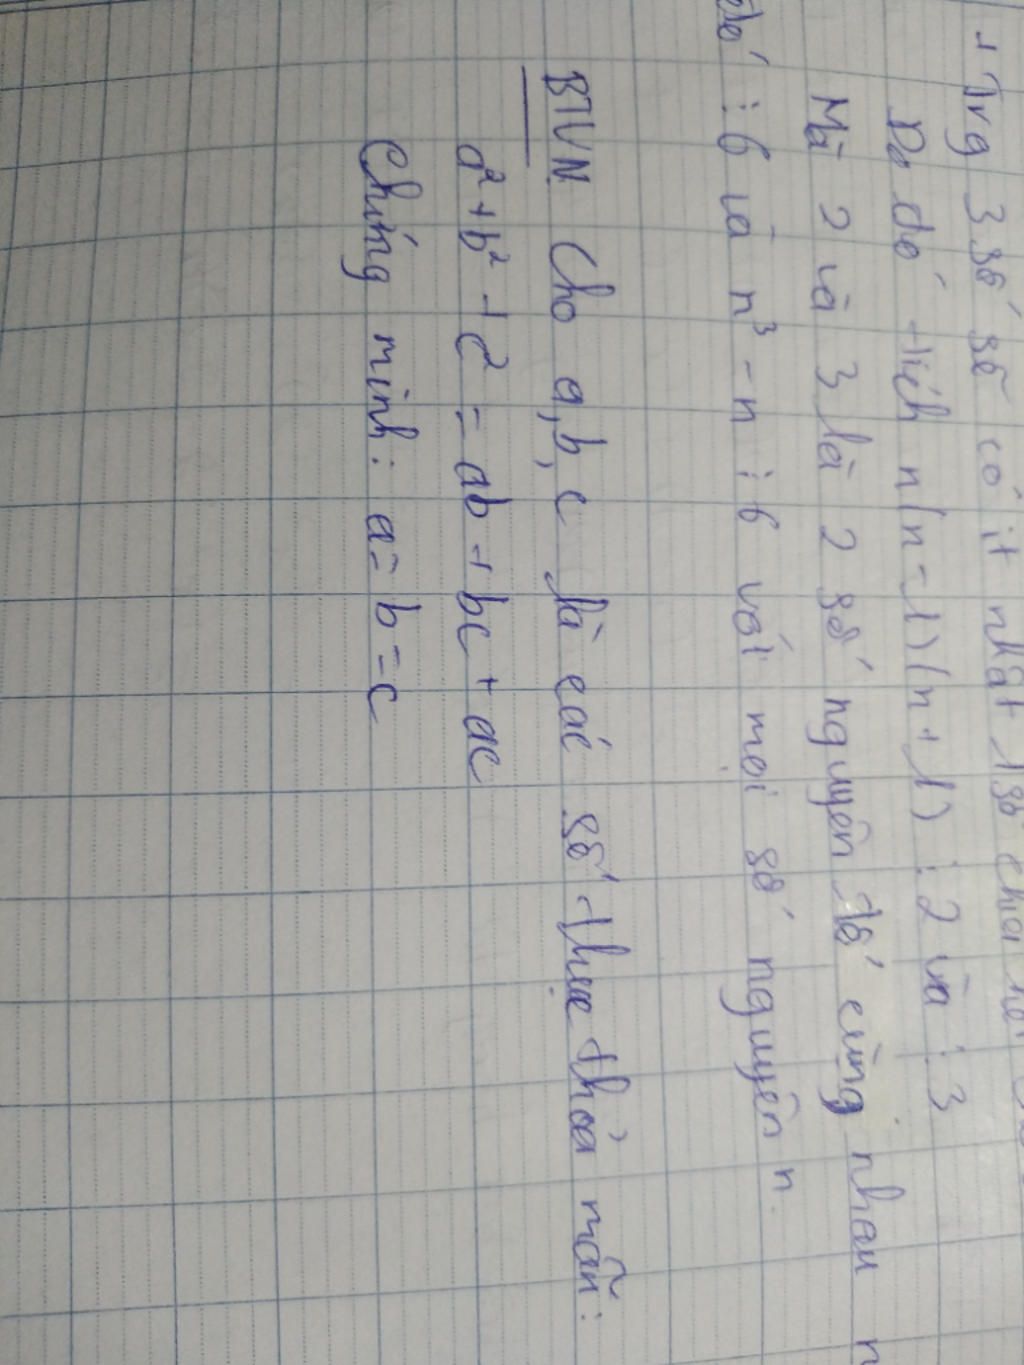 + Trg 3 số sẽ có ít nhất 1 số chia hết
Do đó tích n(n-1)(n+1) ⋮ 2 và ⋮ 3
Mà 2 và 3 là 2 số nguyên tố cùng nhau n
đó ⋮ 6 và n³ - n ⋮ 6 với mọi số nguyên n.
BTVN Cho a, b, c là các số thực thỏa mãn:
a² + b² + c² = ab + bc + ac
Chứng minh: a = b = c